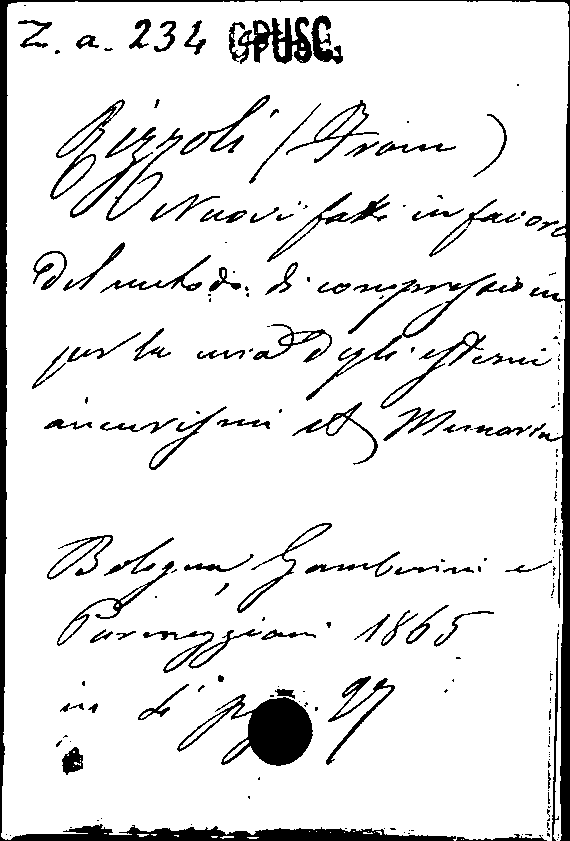 Z. a. 234 OPUSC.
Rizzoli (Franc)
Nuovi fatti in favore
del metodo di compressione
per la cura degli esterni
aneurismi etc Memoria
Bologna, Gamberini e
Parmeggiani 1865
in 4° pag. 27